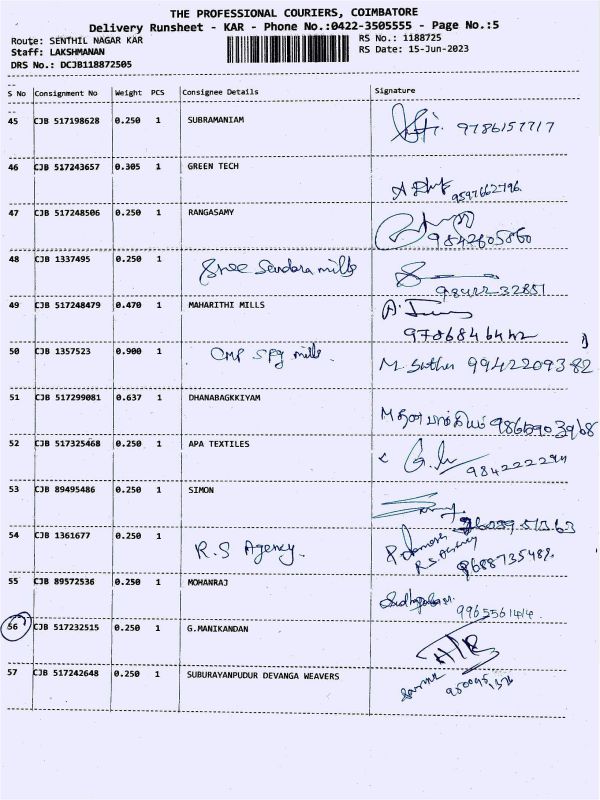 THE PROFESSIONAL COURIERS, COIMBATORE
Delivery Runsheet - KAR - Phone No.:0422-3505555 - Page No.:5
Route: SENTHIL NAGAR KAR
RS No.: 1188725
Staff: LAKSHMANAN
RS Date: 15-Jun-2023
DRS No.: DCJB118872505
S No Consignment No Weight PCS Consignee Details Signature
45 CJB 517198628 0.250 1 SUBRAMANIAM 9786157717
46 CJB 517243657 0.305 1 GREEN TECH
9597662796
47 CJB 517248506 0.250 1 RANGASAMY
9842605860
48 CJB 1337495 0.250 1 Sree Sundara mills
98422 32851
49 CJB 517248479 0.470 1 MAHARITHI MILLS
50 CJB 1357523 0.900 1 OMP SPG mills. 9942209382
51 CJB 517299081 0.637 1 DHANABAGKKIYAM
52 CJB 517325468 0.250 1 APA TEXTILES
53 CJB 89495486 0.250 1 SIMON
54 CJB 1361677 0.250 1 R.S Agency.
R.S Agency
55 CJB 89572536 0.250 1 MOHANRAJ
56 CJB 517232515 0.250 1 G.MANIKANDAN
57 CJB 517242648 0.250 1 SUBURAYANPUDUR DEVANGA WEAVERS